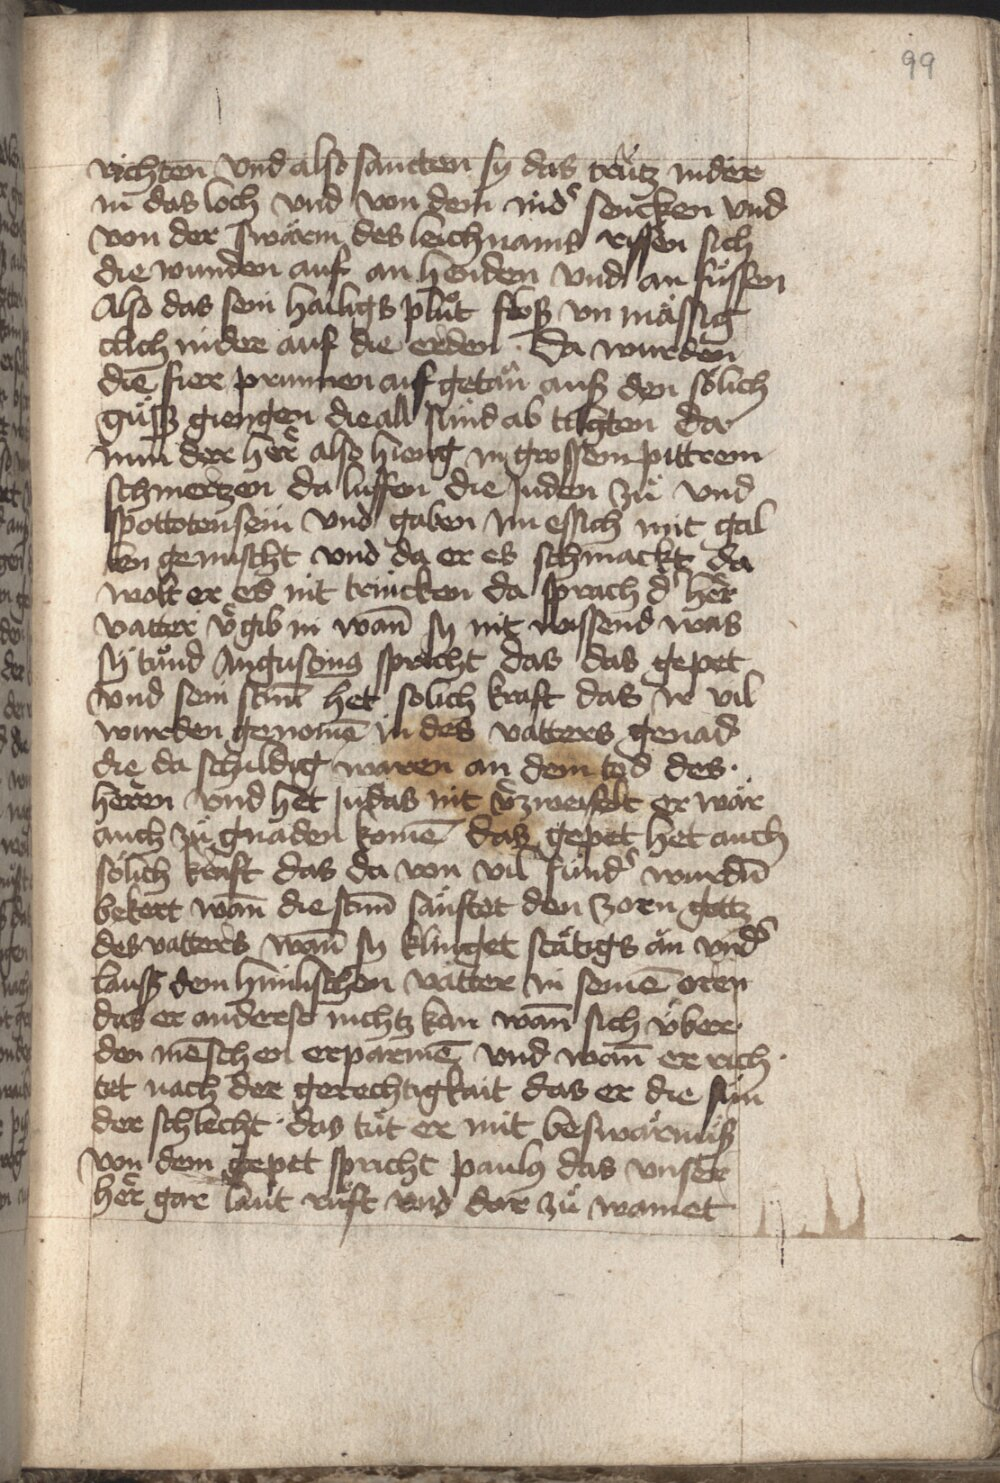 99
richten vnd also sancten sy das creütz nider
in das loch vnd von dem nid' sencken vnd
von der swärin des leichnams rissen sich
die wunden auf an henden vnd an füssen
Also das sein hailigs plůt floß vn mässig
clich nider auf die erden · Da wurden
die fier prunnen auf getan auß den sölich
güß giengen die all sünd ab tilgten Da
nun der her̃ also hieng in grossem pittrem
schmertzen da luffen die Juden zů vnd
spottoten sein vnd gaben im essich mit gal
len gemischt vnd da er es schmackt da
wolt er es nit trincken da sprach d' her̃
vatter v̾gib in wañ sy nit wissend was
sy tůnd Augustinꝯ spricht das das gepet
vnd sein stim̄ het solich kraft das ir vil
wurden genomē in des vatters genad
die da schuldig waren an dem tod des ·
heren vnd het Judas nit v̾zweifelt er wär
auch zů gnaden komē das gepet het auch
sölich kraft das da von vil sünd' wurdn̄
bekert wañ die stim̄ sänftet den zorn gottz
des vatters wañ sy klinget stätigs ān vnd'
lauß dem himlischen vatter in seinē oren
das er anderst nichtz kan wañ sich über
den mēschen erparmē vnd wañ er rich
tet nach der gerechtigkait das er die sün
der schlecht · das tůt er mit beswärnuß
von dem gepet spricht paulꝯ das vnser
her̃ gar laut růft vnd dar zů wainet